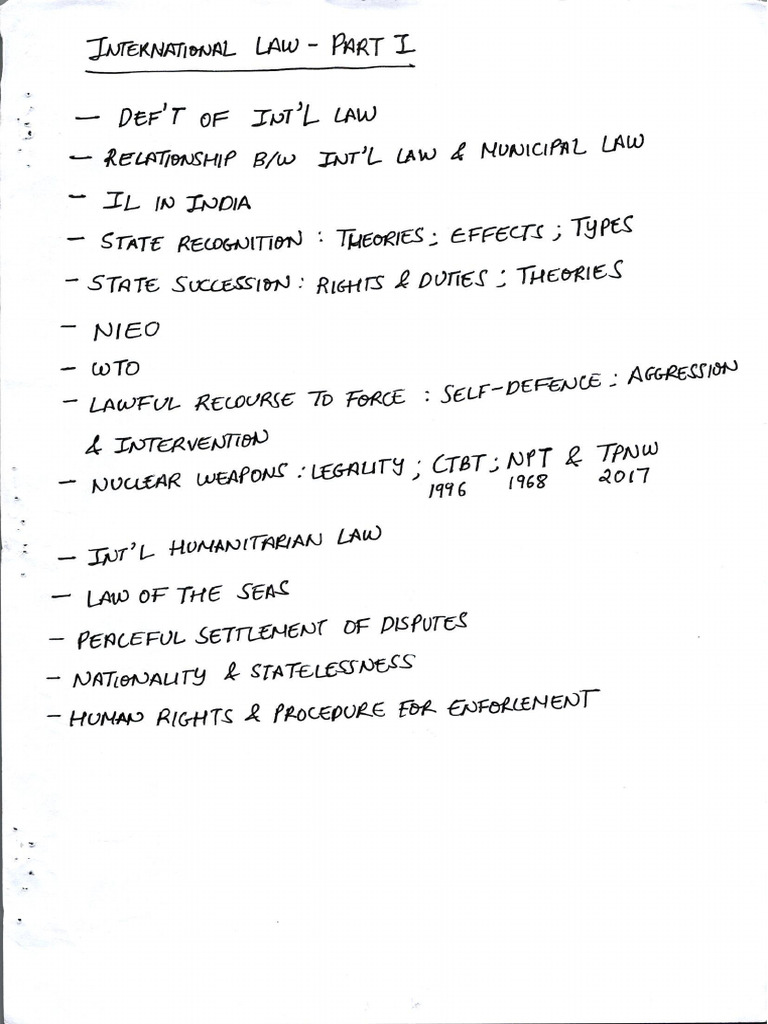 INTERNATIONAL LAW - PART I
- DEF'T OF INT'L LAW
- RELATIONSHIP B/W INT'L LAW & MUNICIPAL LAW
- IL IN INDIA
- STATE RECOGNITION : THEORIES ; EFFECTS ; TYPES
- STATE SUCCESSION : RIGHTS & DUTIES ; THEORIES
- NIEO
- WTO
- LAWFUL RECOURSE TO FORCE : SELF-DEFENCE ; AGGRESSION
& INTERVENTION
- NUCLEAR WEAPONS : LEGALITY ; CTBT ; NPT & TPNW
1996 1968 2017
- INT'L HUMANITARIAN LAW
- LAW OF THE SEAS
- PEACEFUL SETTLEMENT OF DISPUTES
- NATIONALITY & STATELESSNESS
- HUMAN RIGHTS & PROCEDURE FOR ENFORCEMENT